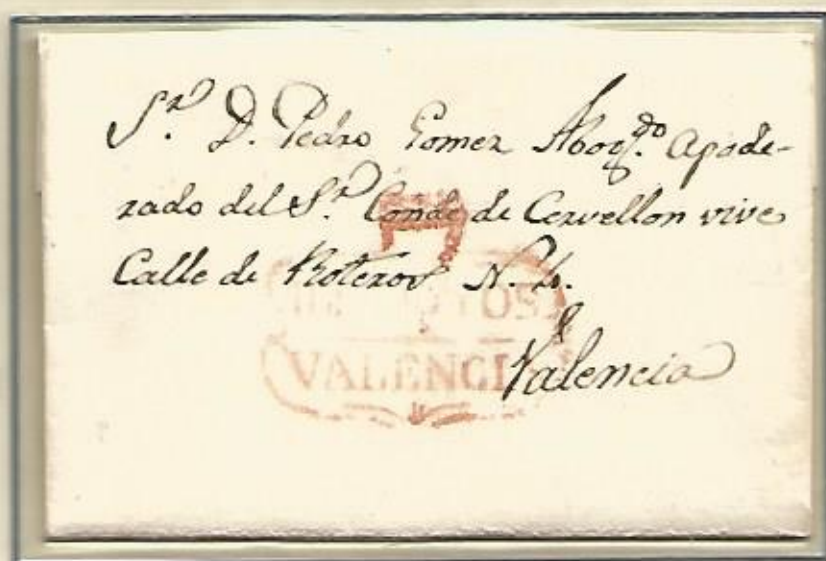 Sr. D. Pedro Gomez Abogdo. Apode-
rado del Sr. Conde de Cervellon vive
Calle de Roteros N. 4.
Valencia
VALENCI